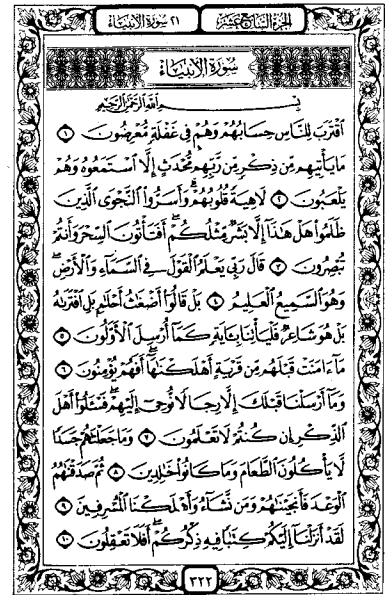 الجزء السابع عشر ٢١ سورة الأنبياء
سورة الأنبياء
بسم الله الرحمن الرحيم
ٱقْتَرَبَ لِلنَّاسِ حِسَابُهُمْ وَهُمْ فِى غَفْلَةٍ مُّعْرِضُونَ ١
مَا يَأْتِيهِم مِّن ذِكْرٍ مِّن رَّبِّهِم مُّحْدَثٍ إِلَّا ٱسْتَمَعُوهُ وَهُمْ
يَلْعَبُونَ ٢ لَاهِيَةً قُلُوبُهُمْ وَأَسَرُّوا۟ ٱلنَّجْوَى ٱلَّذِينَ
ظَلَمُوا۟ هَلْ هَٰذَآ إِلَّا بَشَرٌ مِّثْلُكُمْ أَفَتَأْتُونَ ٱلسِّحْرَ وَأَنتُمْ
تُبْصِرُونَ ٣ قَالَ رَبِّى يَعْلَمُ ٱلْقَوْلَ فِى ٱلسَّمَآءِ وَٱلْأَرْضِ
وَهُوَ ٱلسَّمِيعُ ٱلْعَلِيمُ ٤ بَلْ قَالُوٓا۟ أَضْغَٰثُ أَحْلَٰمٍ بَلِ ٱفْتَرَىٰهُ
بَلْ هُوَ شَاعِرٌ فَلْيَأْتِنَا بِـَٔايَةٍ كَمَآ أُرْسِلَ ٱلْأَوَّلُونَ ٥
مَآ ءَامَنَتْ قَبْلَهُم مِّن قَرْيَةٍ أَهْلَكْنَٰهَآ أَفَهُمْ يُؤْمِنُونَ ٦
وَمَآ أَرْسَلْنَا قَبْلَكَ إِلَّا رِجَالًا نُّوحِىٓ إِلَيْهِمْ فَسْـَٔلُوٓا۟ أَهْلَ
ٱلذِّكْرِ إِن كُنتُمْ لَا تَعْلَمُونَ ٧ وَمَا جَعَلْنَٰهُمْ جَسَدًا
لَّا يَأْكُلُونَ ٱلطَّعَامَ وَمَا كَانُوا۟ خَٰلِدِينَ ٨ ثُمَّ صَدَقْنَٰهُمُ
ٱلْوَعْدَ فَأَنجَيْنَٰهُمْ وَمَن نَّشَآءُ وَأَهْلَكْنَا ٱلْمُسْرِفِينَ ٩
لَقَدْ أَنزَلْنَآ إِلَيْكُمْ كِتَٰبًا فِيهِ ذِكْرُكُمْ أَفَلَا تَعْقِلُونَ ١٠
٣٢٢